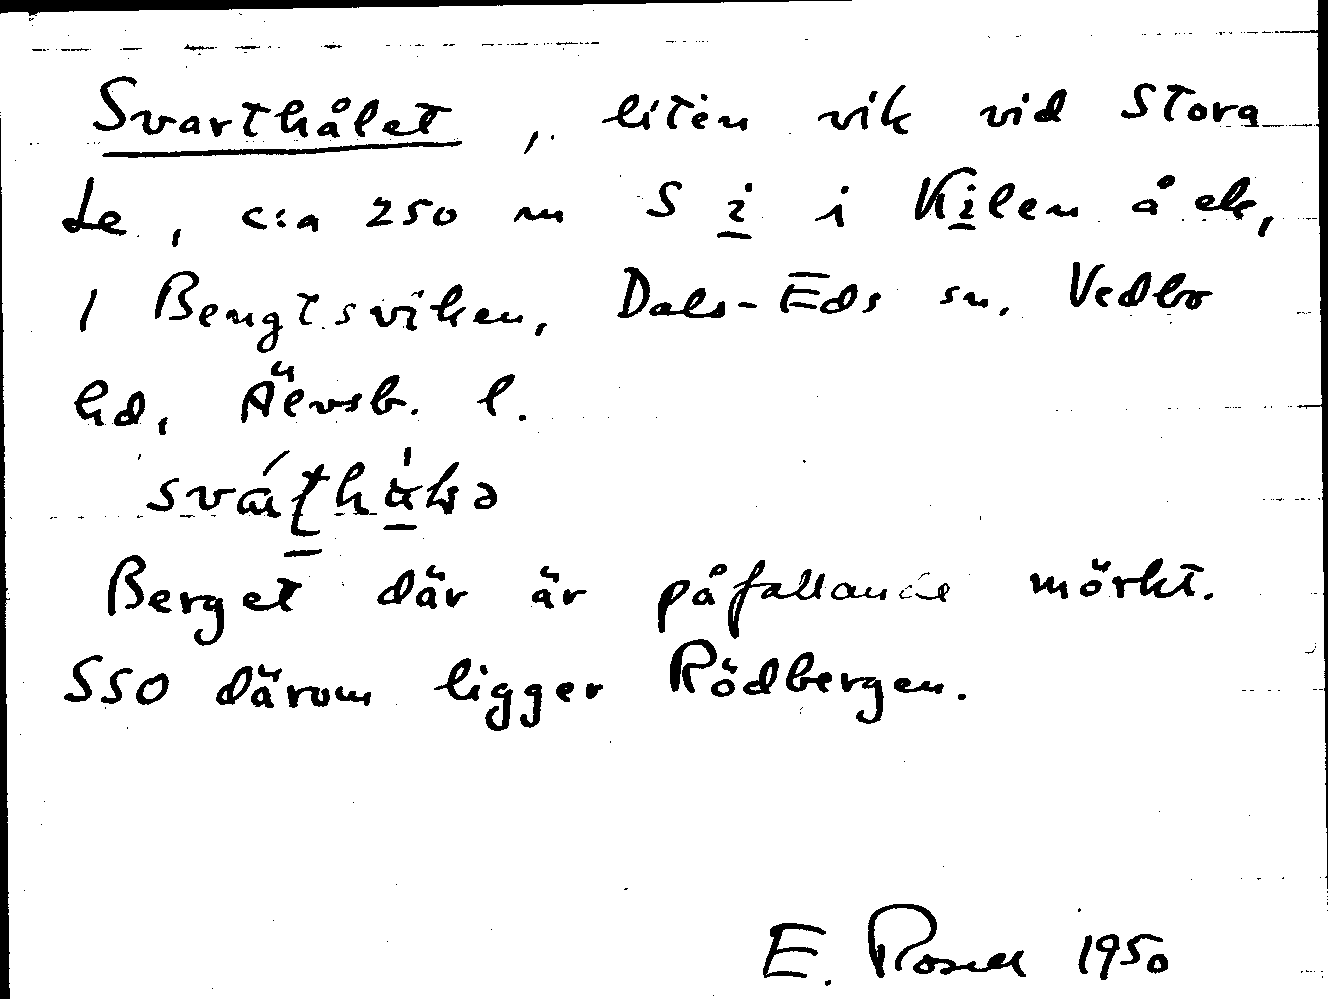 Svarthålet, liten vik vid Stora
Le, c:a 250 m S i i Kilen å ek,
1 Bengtsviken, Dals-Eds sn. Vedbo
hd, Älvsb. l.
Berget där är påfallande mörkt.
SSO därom ligger Rödbergen.
E. Rosell 1950